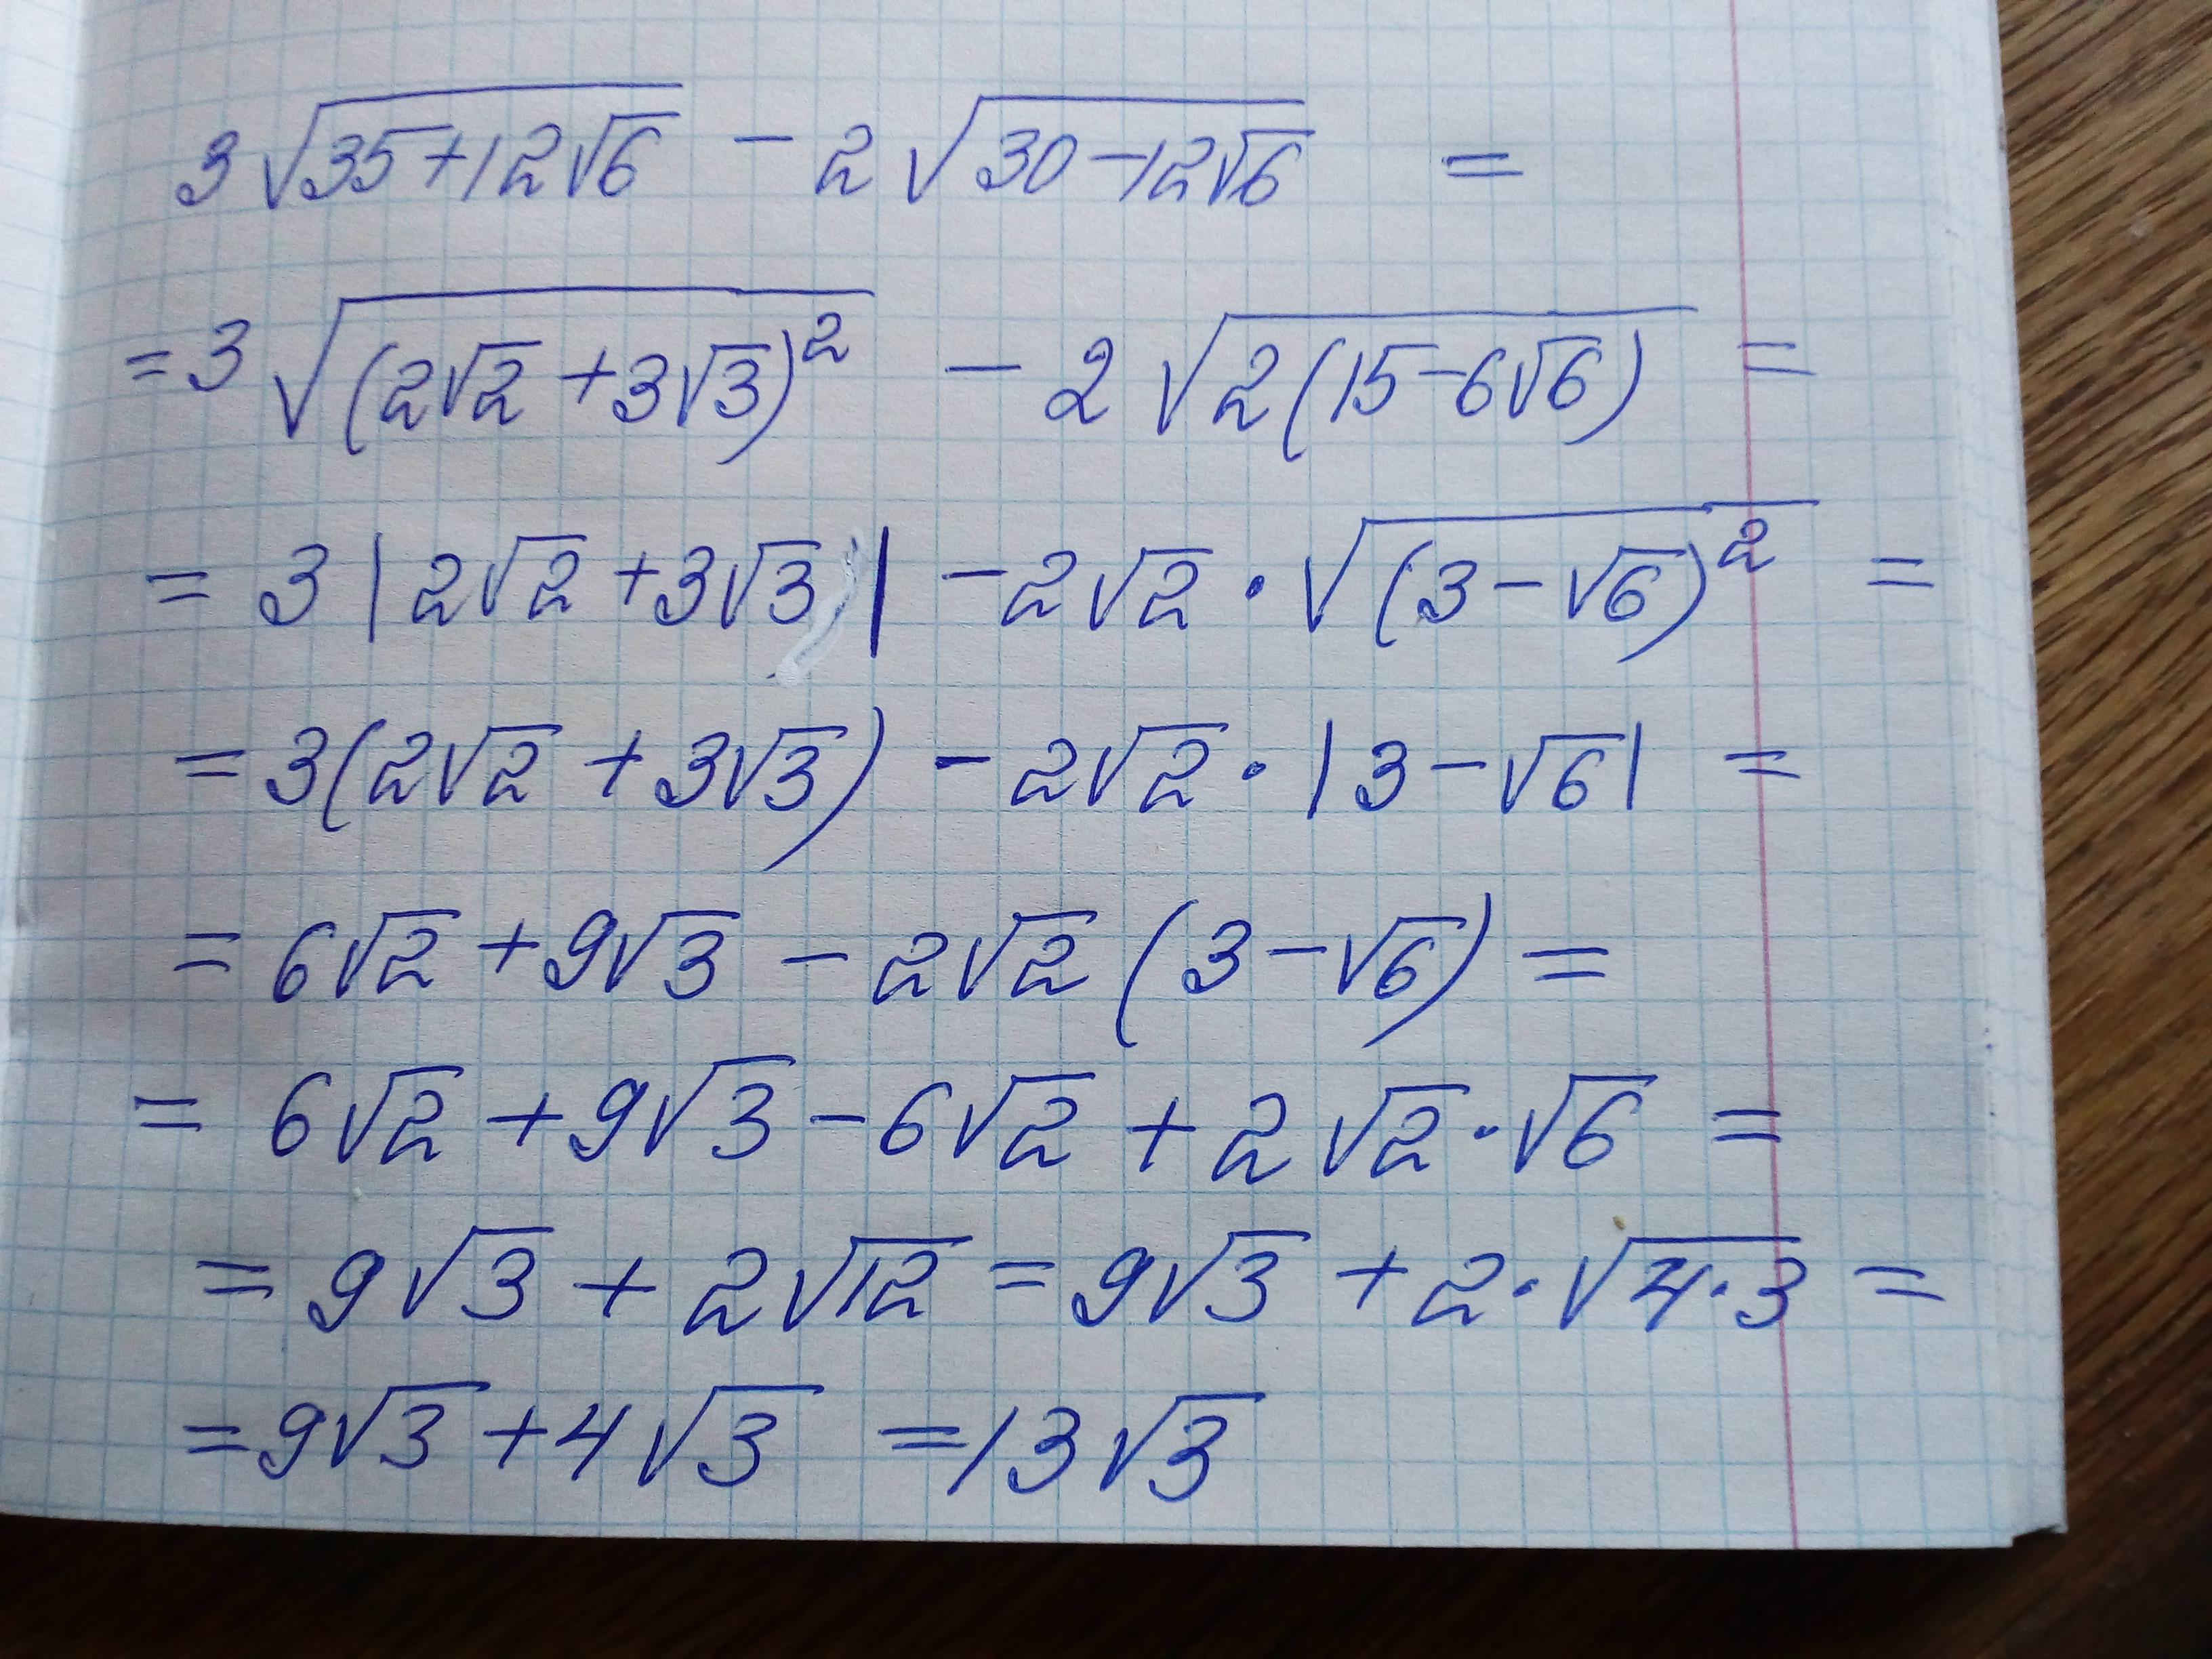 3√(35+12√6) − 2√(30−12√6) =
=3√((2√2+3√3)²) − 2√(2(15−6√6)) =
= 3|2√2+3√3| −2√2·√((3−√6)²) =
=3(2√2+3√3) − 2√2·|3−√6| =
= 6√2+9√3 − 2√2(3−√6) =
= 6√2+9√3−6√2+2√2·√6 =
= 9√3+2√12 = 9√3+2·√(4·3) =
=9√3+4√3 =13√3